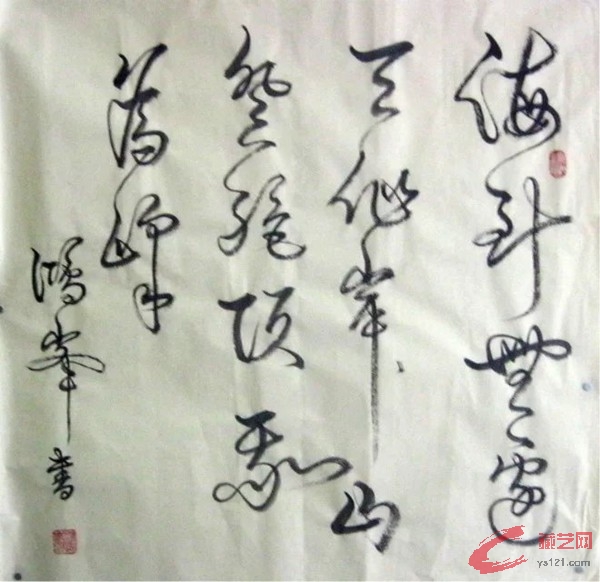 海到無邊
天作岸山
登絕頂我
為峰
鴻峯書
藏艺网
ys121.com